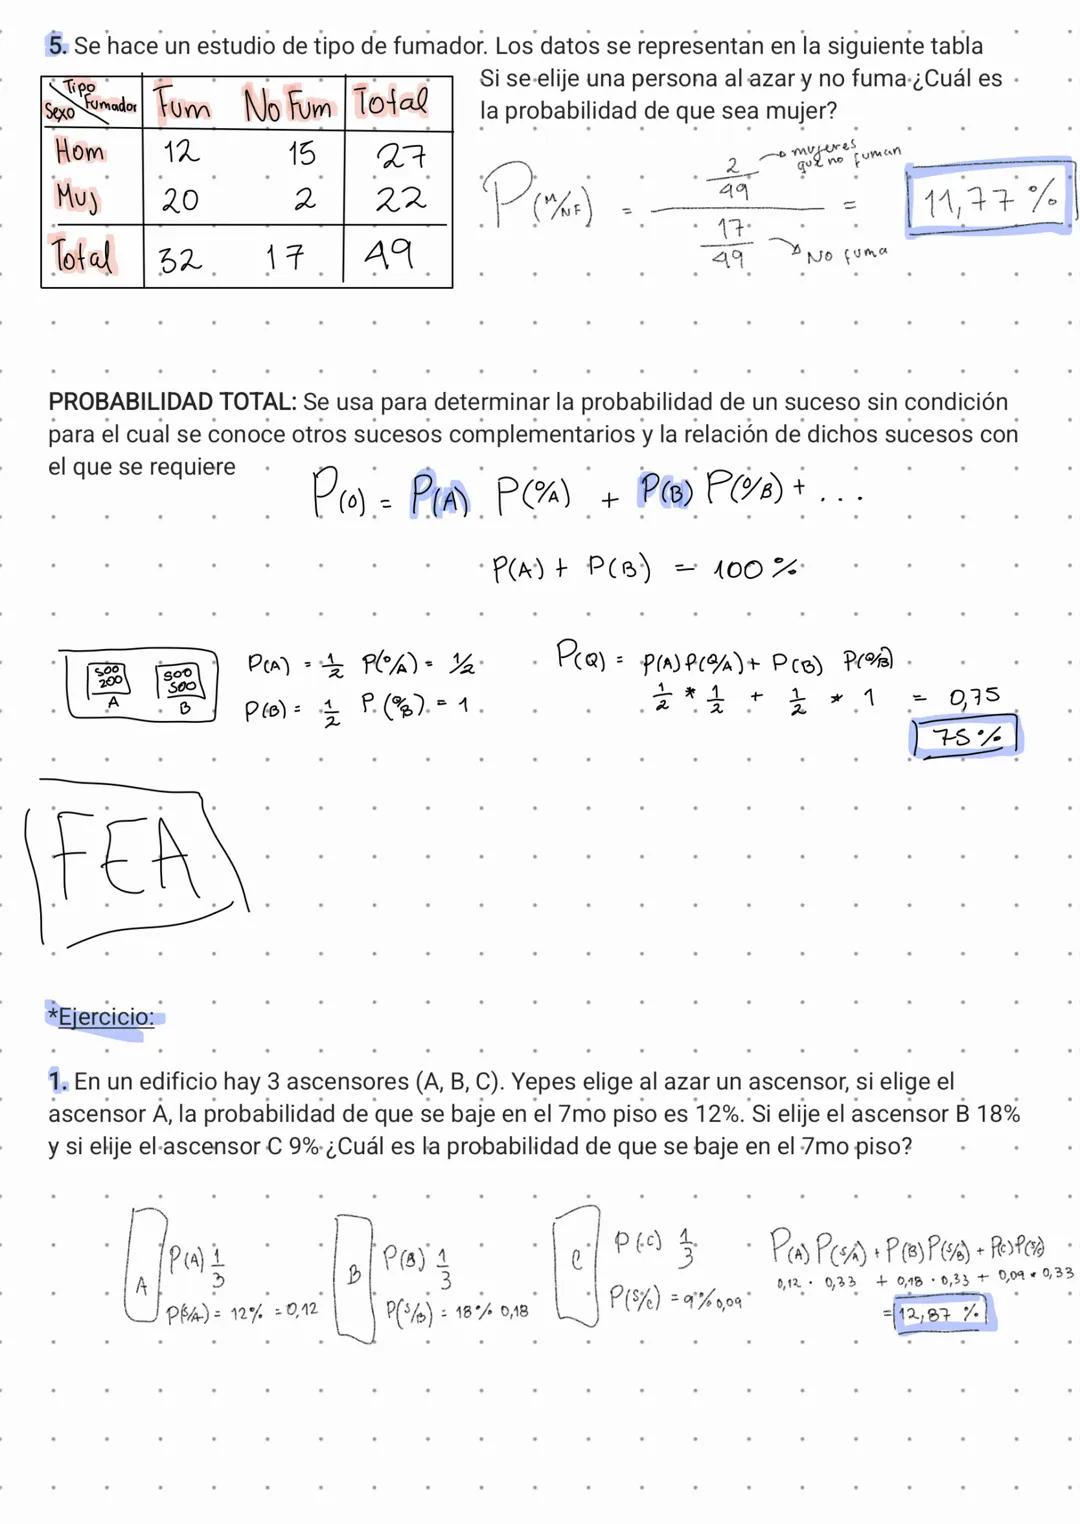 5. Se hace un estudio de tipo de fumador. Los datos se representan en la siguiente tabla
Si se elije una persona al azar y no fuma ¿Cuál es
la probabilidad de que sea mujer?
Tipo Fumador
Sexo
Fum No Fum Total
Hom 12 15 27
Muj 20 2 22
Total 32 17 49
P(M/NF) = (2/49) / (17/49) = 11,77 %
mujeres que no fuman
No fuma
PROBABILIDAD TOTAL: Se usa para determinar la probabilidad de un suceso sin condición
para el cual se conoce otros sucesos complementarios y la relación de dichos sucesos con
el que se requiere
P(O) = P(A) P(O/A) + P(B) P(O/B) + ...
P(A) + P(B) = 100 %
500 200 A
500 500 B
P(A) = 1/2 P(O/A) = 1/2
P(B) = 1/2 P(O/B) = 1
P(Q) = P(A) P(Q/A) + P(B) P(Q/B)
1/2 * 1/2 + 1/2 * 1 = 0,75
75 %
FEA
*Ejercicio:
1. En un edificio hay 3 ascensores (A, B, C). Yepes elige al azar un ascensor, si elige el
ascensor A, la probabilidad de que se baje en el 7mo piso es 12%. Si elije el ascensor B 18%
y si elije el ascensor C 9% ¿Cuál es la probabilidad de que se baje en el 7mo piso?
A P(A) 1/3
P(S/A) = 12% = 0,12
B P(B) 1/3
P(S/B) = 18% 0,18
C P(C) 1/3
P(S/C) = 9% 0,09
P(A) P(S/A) + P(B) P(S/B) + P(C) P(S/C)
0,12 . 0,33 + 0,18 . 0,33 + 0,09 * 0,33
= 12,87 %